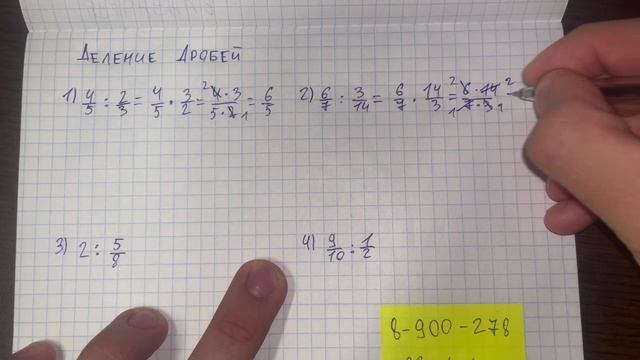 Деление дробей
1) 4/5 : 2/3 = 4/5 · 3/2 = ²4·3/5·2₁ = 6/5
2) 6/7 : 3/14 = 6/7 · 14/3 = ²6·14²/₁7·3₁
3) 2 : 5/8
4) 9/10 : 1/2
8-900-278